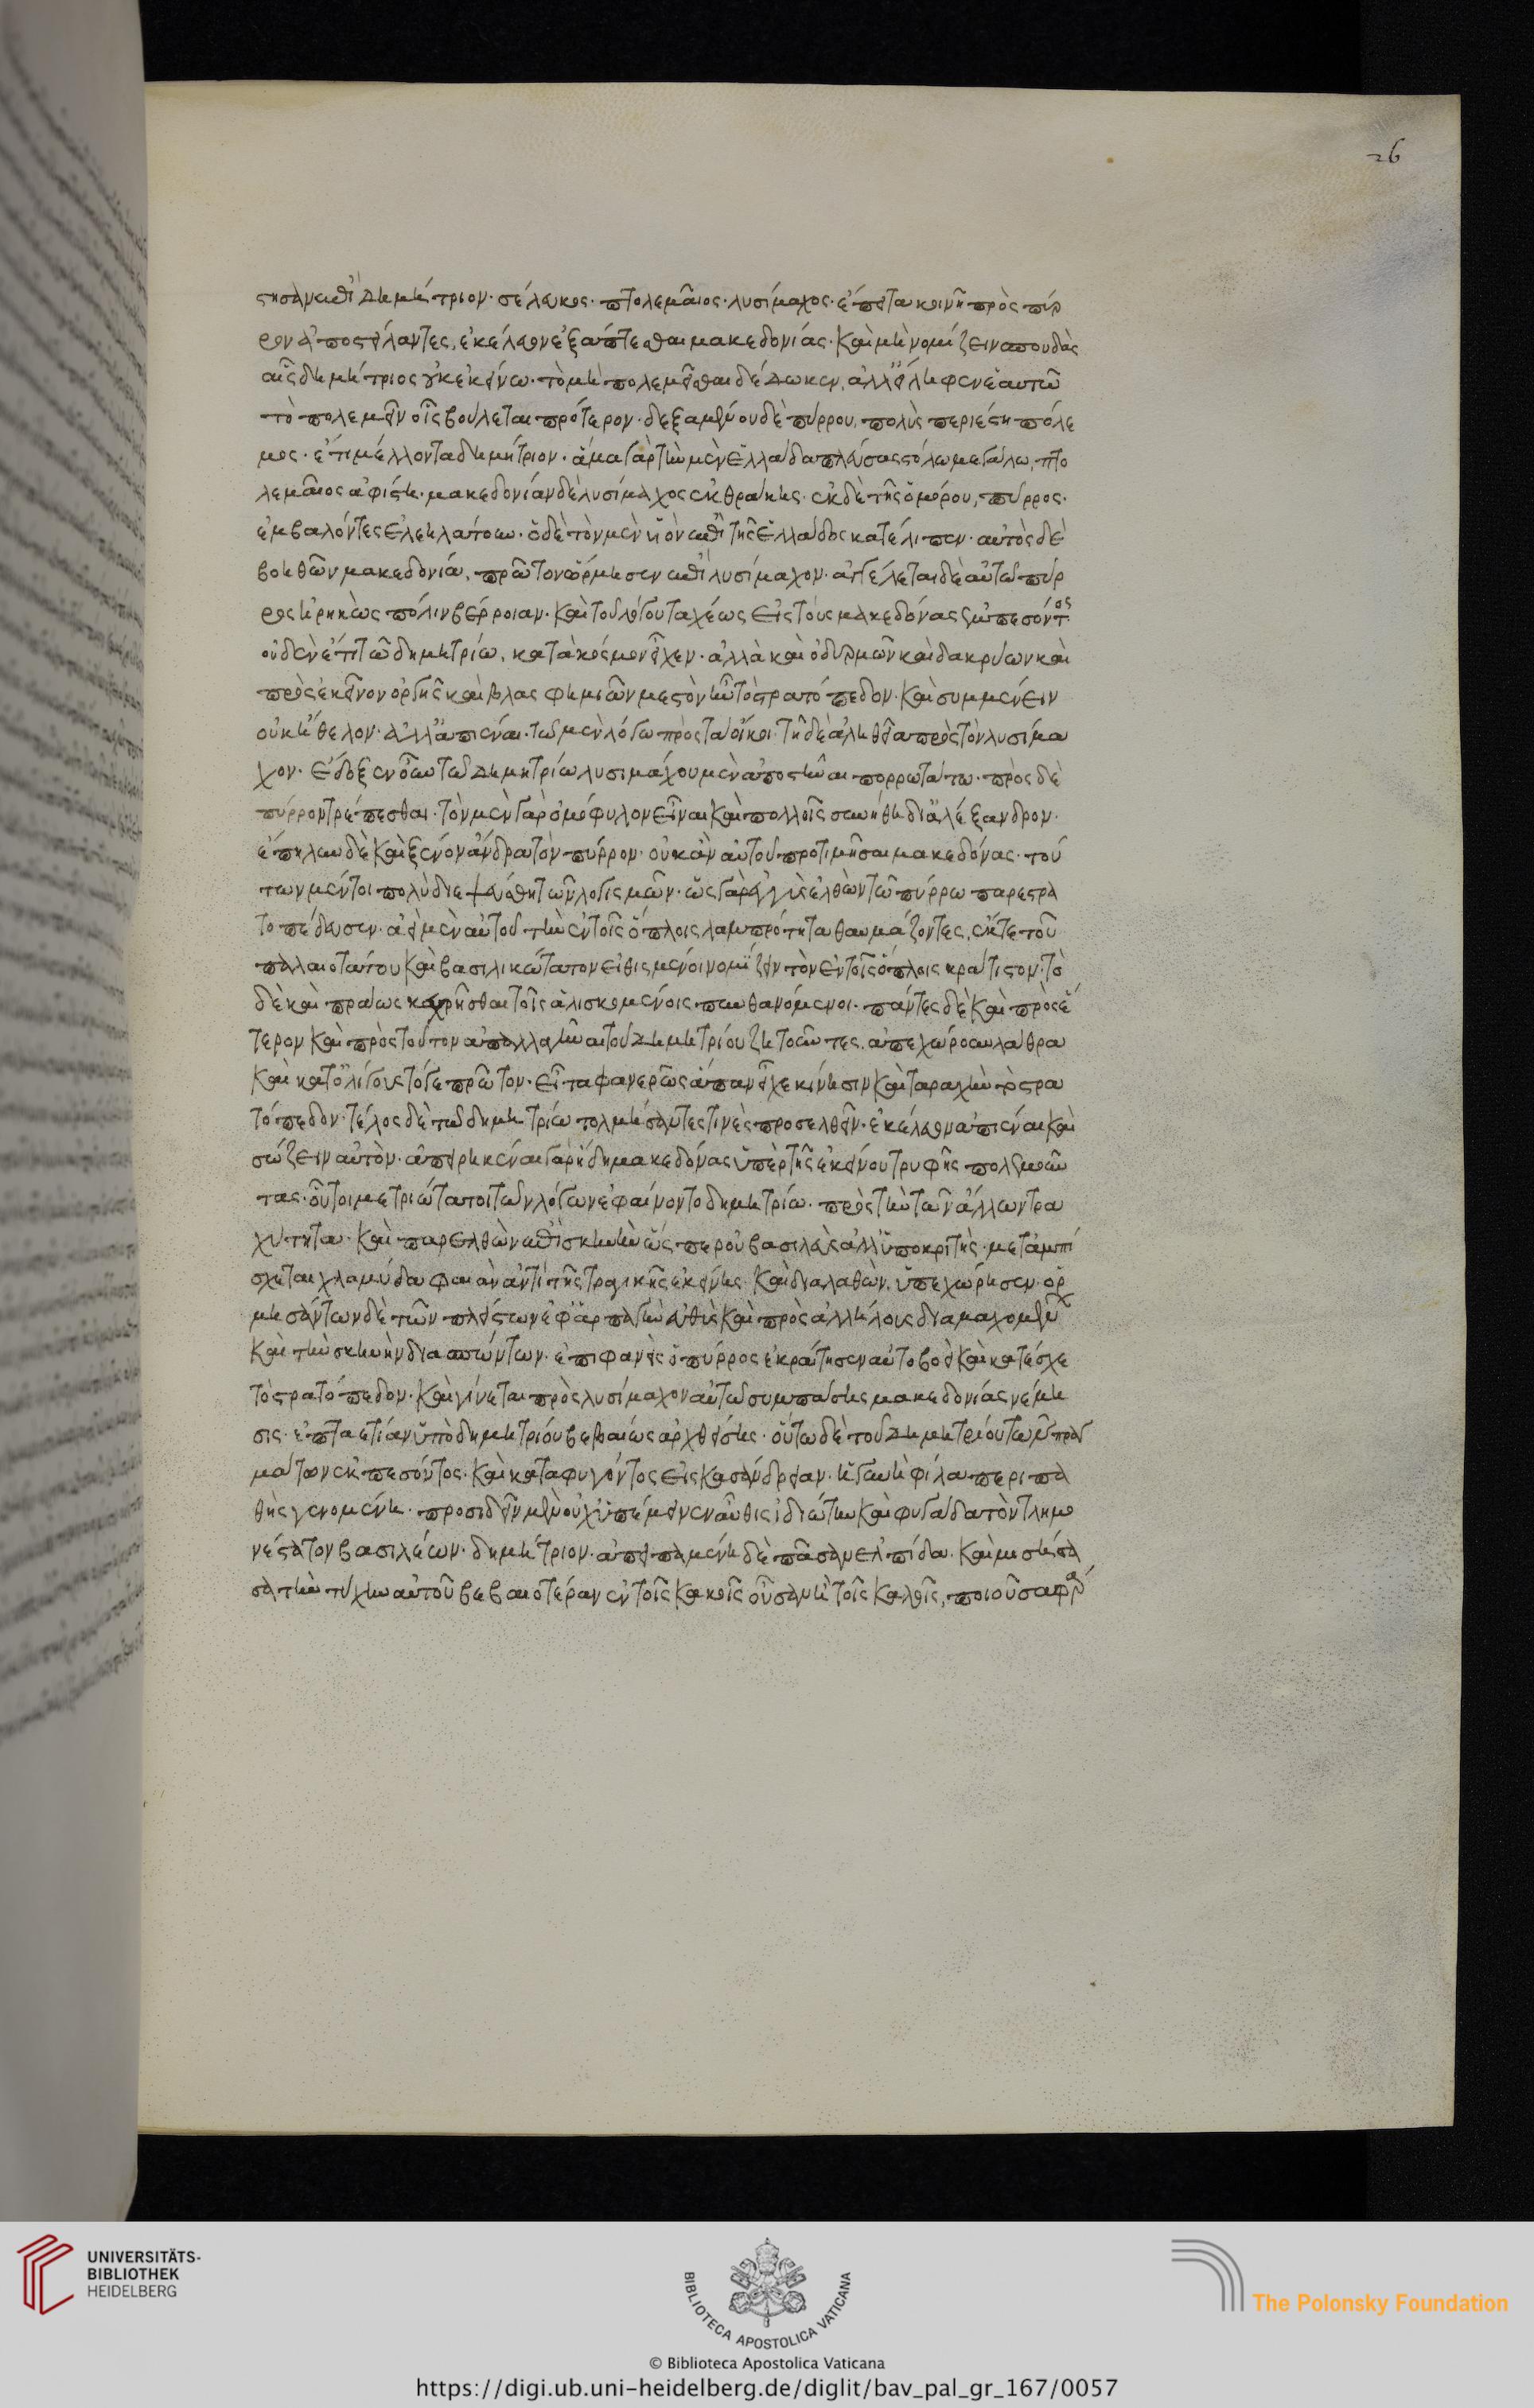 26
στησαν ἐπὶ δημήτριον· σέλευκος· πτολεμαῖος· λυσίμαχος· ἔπειτα κοινῆ πρὸς πύρ
ρον ἀποστείλαντες, ἐκέλευον ἐξάπτεσθαι μακεδονίας· καὶ μὴ νομίζειν σπουδὰς
αἷς δημήτριος οὐκ ἐκείνω· τὸ μὴ πολεμεῖσθαι δέδωκεν, ἀλλ' εἴληφεν ἑαυτῶ
τὸ πολεμεῖν οἷς βούλεται πρότερον· δεξαμένου δὲ πύρρου, πολὺς περιέστη πόλε
μος· ἔτι μέλλοντα δημήτριον· ἅμα γὰρ τὴν μὲν ἑλλάδα πλεύσας στόλω μεγάλω, πτο
λεμαῖος ἀφίστη· μακεδονίαν δὲ λυσίμαχος ἐκ θράκης· ἐκ δὲ τῆς ὁμόρου, πύρρος·
ἐμβαλόντες ἐλεηλάτουν· ὁ δὲ τὸν μὲν υἱὸν ἐπὶ τῆς ἑλλάδος κατέλιπεν· αὐτὸς δὲ
βοηθῶν μακεδονία, πρῶτον ὥρμησεν ἐπὶ λυσίμαχον· ἀγγέλεται δὲ αὐτῶ πύρ
ρος ἡρηκὼς πόλιν βέρροιαν· καὶ τοῦ λόγου ταχέως εἰς τοὺς μακεδόνας ἐμπεσόντος
οὐδὲν ἔτι τῶ δημητρίω, κατὰ κόσμον εἶχεν· ἀλλὰ καὶ ὀδυρμῶν καὶ δακρύων καὶ
πρὸς ἐκεῖνον ὀργῆς καὶ βλασφημιῶν μεστὸν ἦν τὸ στρατόπεδον· καὶ συμμένειν
οὐκ ἤθελον· ἀλλ' ἀπιέναι· τῶ μὲν λόγω πρὸς τὰ οἴκοι· τῆ δὲ ἀληθεία πρὸς τὸν λυσίμα
χον· ἔδοξεν οὖν τῶ δημητρίω λυσιμάχου μὲν ἀποστῆναι πορρωτάτω· πρὸς δὲ
πύρρον τρέπεσθαι· τὸν μὲν γὰρ ὁμόφυλον εἶναι καὶ πολλοῖς συνήθη δι' ἀλέξανδρον·
ἔπηλυν δὲ καὶ ξένον ἄνδρα τὸν πύρρον· οὐκ ἂν αὐτοῦ προτιμῆσαι μακεδόνας· τού
των μέντοι πολὺ διεψεύσθη τῶν λογισμῶν· ὡς γὰρ ἐγγὺς ἐλθὼν τῶ πύρρω παρεστρα
τοπέδευσεν· ἀεὶ μὲν αὐτοῦ τὴν ἐν τοῖς ὅπλοις λαμπρότητα θαυμάζοντες, ἔκ τε τοῦ
παλαιοτάτου καὶ βασιλικώτατον εἰθισμένοι νομίζειν τὸν ἐν τοῖς ὅπλοις κράτιστον· τὸ
δὲ καὶ πράως κεχρῆσθαι τοῖς ἁλισκομένοις πυνθανόμενοι· πάντες δὲ καὶ πρὸς ἕ
τερον καὶ πρὸς τοῦτον ἀπαλλαγῆναι τοῦ δημητρίου ζητοῦντες, ἀπεχώρουν λάθρα
καὶ κατ' ὀλίγους τό γε πρῶτον· εἶτα φανερῶς ἅπαν εἶχε κίνησιν καὶ ταραχὴν τὸ στρα
τόπεδον· τέλος δὲ τῶ δημητρίω τολμήσαντές τινες προσελθεῖν· ἐκέλευον ἀπιέναι καὶ
σώζειν αὐτὸν· ἀπειρηκέναι γὰρ ἤδη μακεδόνας ὑπὲρ τῆς ἐκείνου τρυφῆς πολεμοῦν
τας· οὗτοι μετριώτατοι τῶν λόγων ἐφαίνοντο δημητρίω· πρὸς τὴν τῶν ἄλλων τρα
χύτητα· καὶ παρελθὼν ἐπὶ σκηνὴν ὥσπερ οὐ βασιλεὺς ἀλλ' ὑποκριτὴς· μεταμπί
σχεται χλαμύδα φαιὰν ἀντὶ τῆς τραγικῆς ἐκείνης· καὶ διαλαθὼν, ὑπεχώρησεν· ὁρ
μησάντων δὲ τῶν πλείστων ἐφ' ἁρπαγὴν εὐθὺς καὶ πρὸς ἀλλήλους διαμαχομένων
καὶ τὴν σκηνὴν διασπώντων· ἐπιφανεὶς ὁ πύρρος ἐκράτησεν αὐτοβοεὶ καὶ κατέσχε
τὸ στρατόπεδον· καὶ γίνεται πρὸς λυσίμαχον αὐτῶ συμπάσης μακεδονίας νέμη
σις· ἑπταετίαν ὑπὸ δημητρίου βεβαίως ἀρχθείσης· οὕτω δὲ τοῦ δημητρίου τῶν πραγ
μάτων ἐκπεσόντος· καὶ καταφυγόντος εἰς κασάνδρειαν· ἡ γυνὴ φίλα περιπα
θὴς γενομένη· προσιδεῖν μὲν οὐχ ὑπέμεινεν αὖθις ἰδιώτην καὶ φυγάδα τὸν τλημο
νέστατον βασιλέων· δημήτριον· ἀπειπαμένη δὲ πᾶσαν ἐλπίδα· καὶ μισήσα
σα τὴν τύχην αὐτοῦ βεβαιοτέραν ἐν τοῖς κακοῖς οὖσαν ἢ τοῖς καλοῖς, πιοῦσα φάρ
UNIVERSITÄTS-
BIBLIOTHEK
HEIDELBERG
BIBLIOTECA APOSTOLICA VATICANA
The Polonsky Foundation
© Biblioteca Apostolica Vaticana
https://digi.ub.uni-heidelberg.de/diglit/bav_pal_gr_167/0057